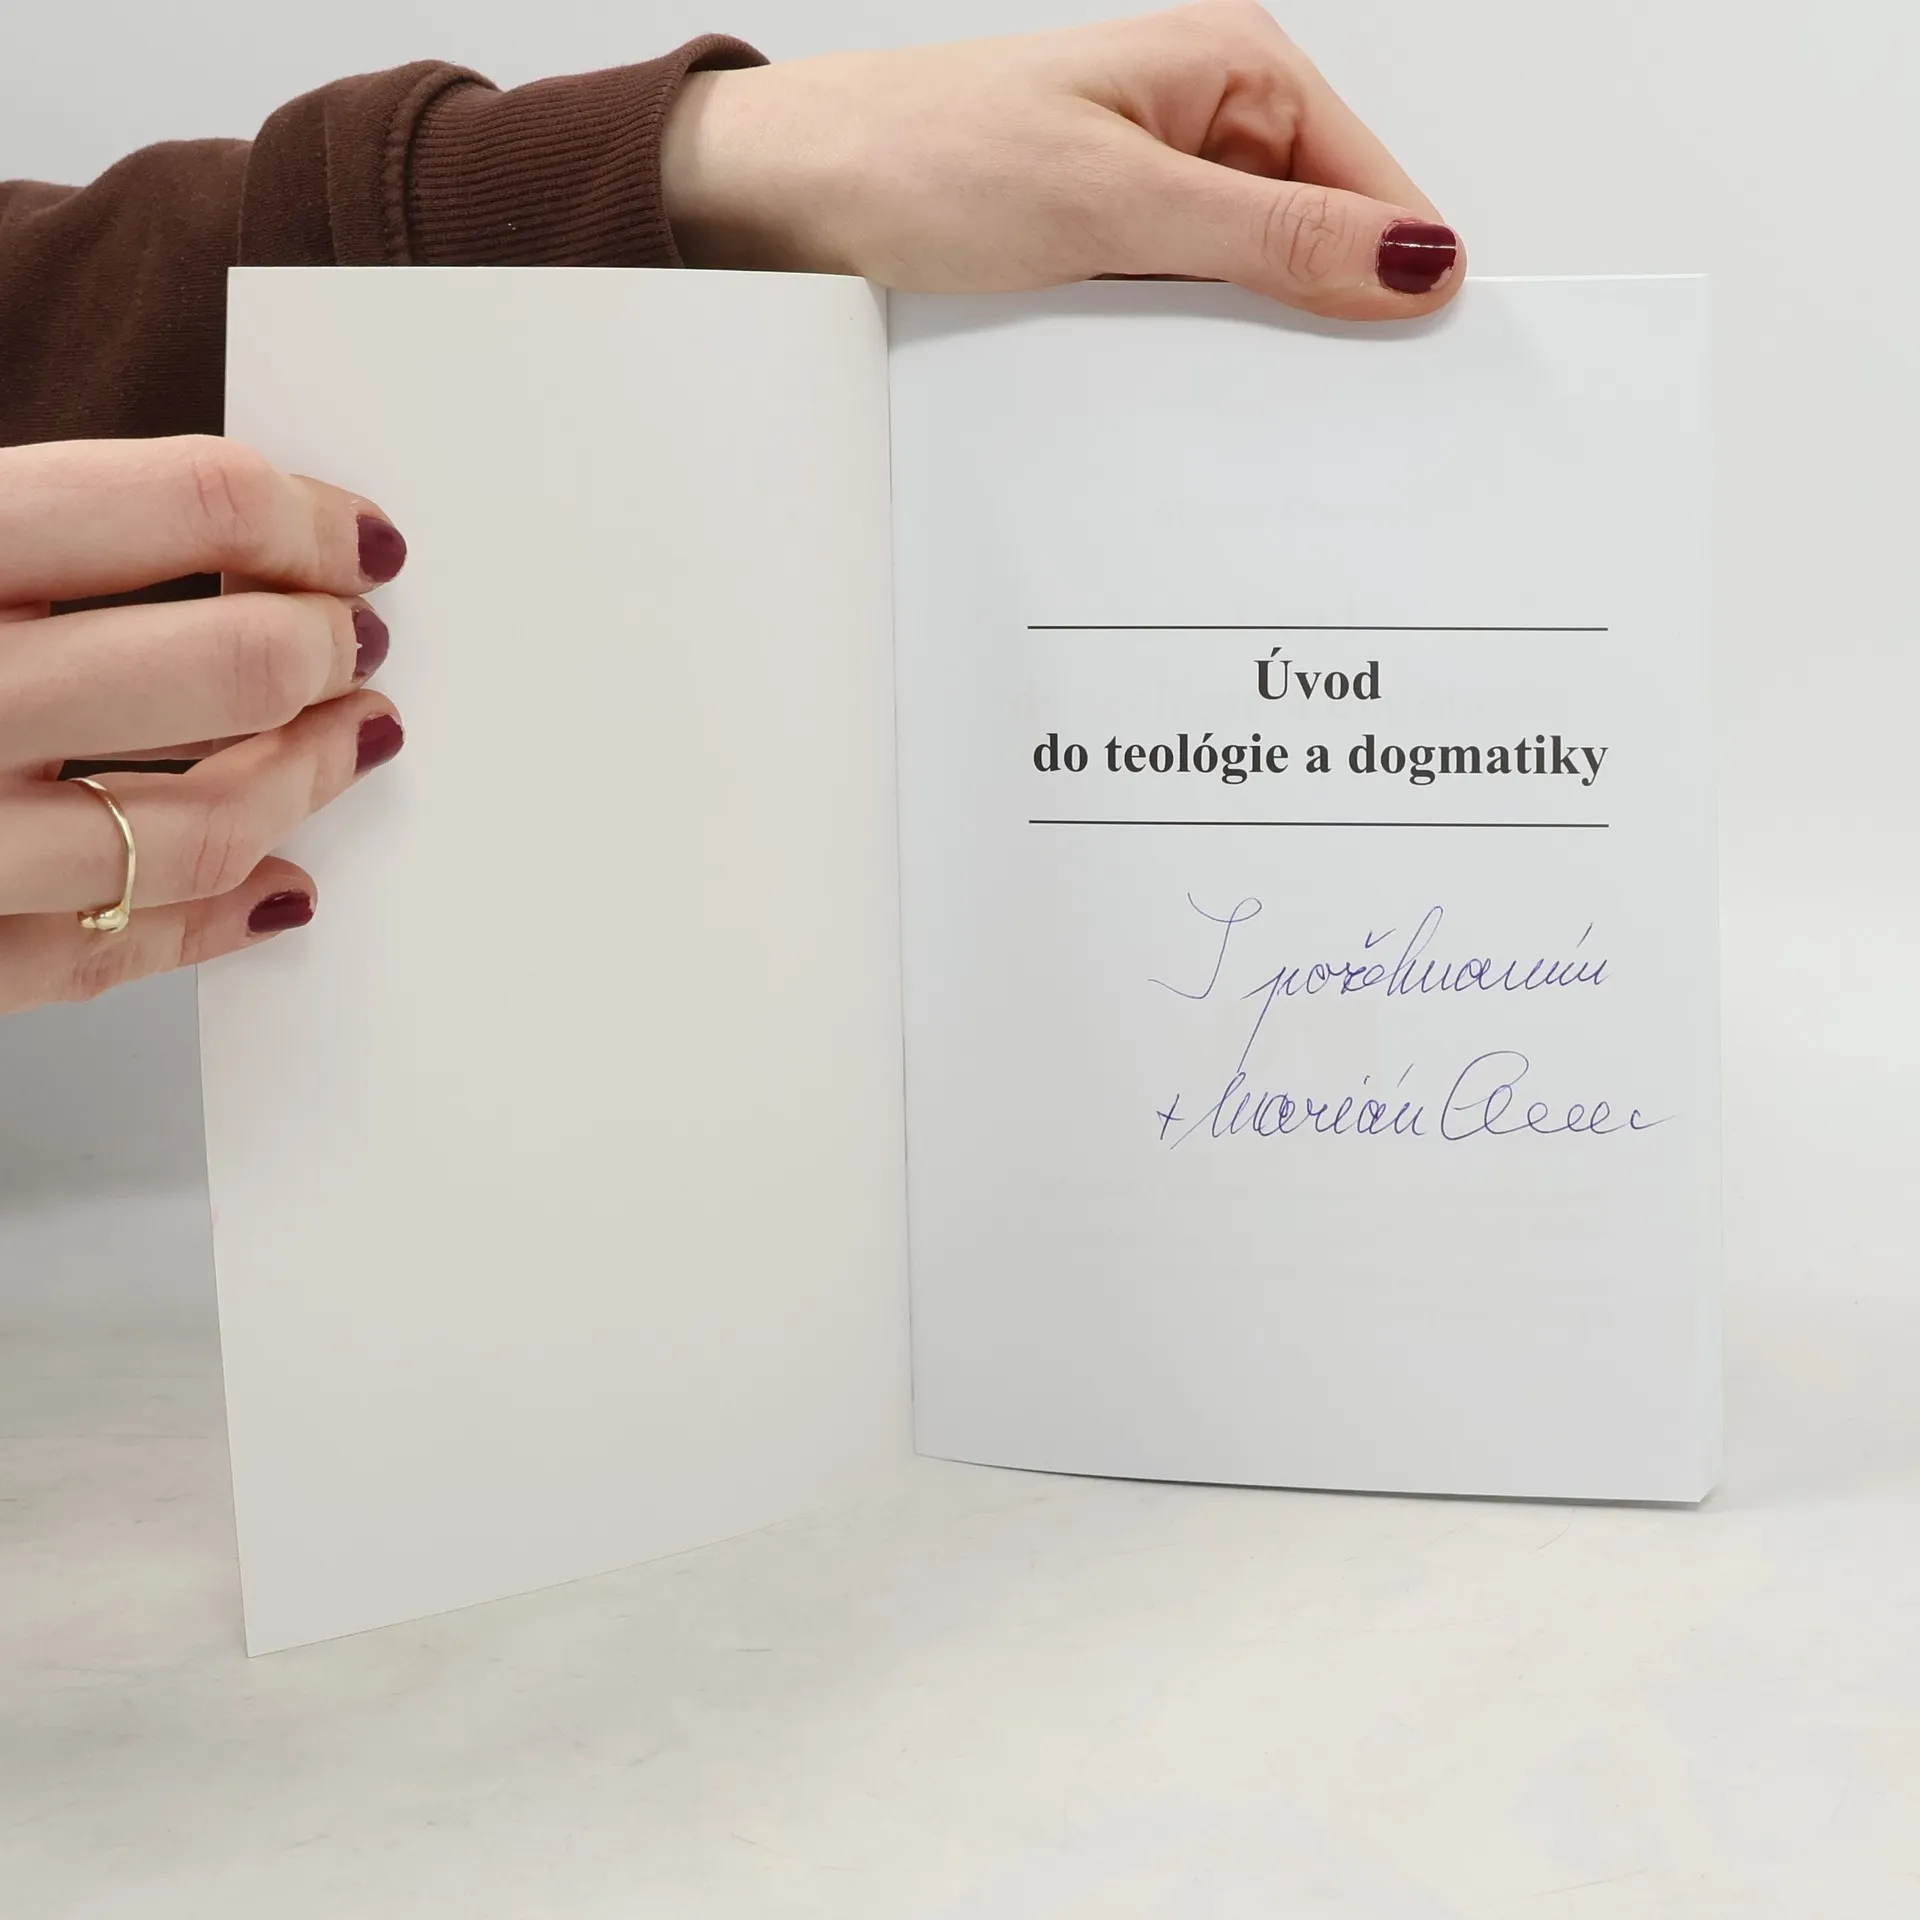 Úvod
do teológie a dogmatiky
S požehnaním
+ Marián